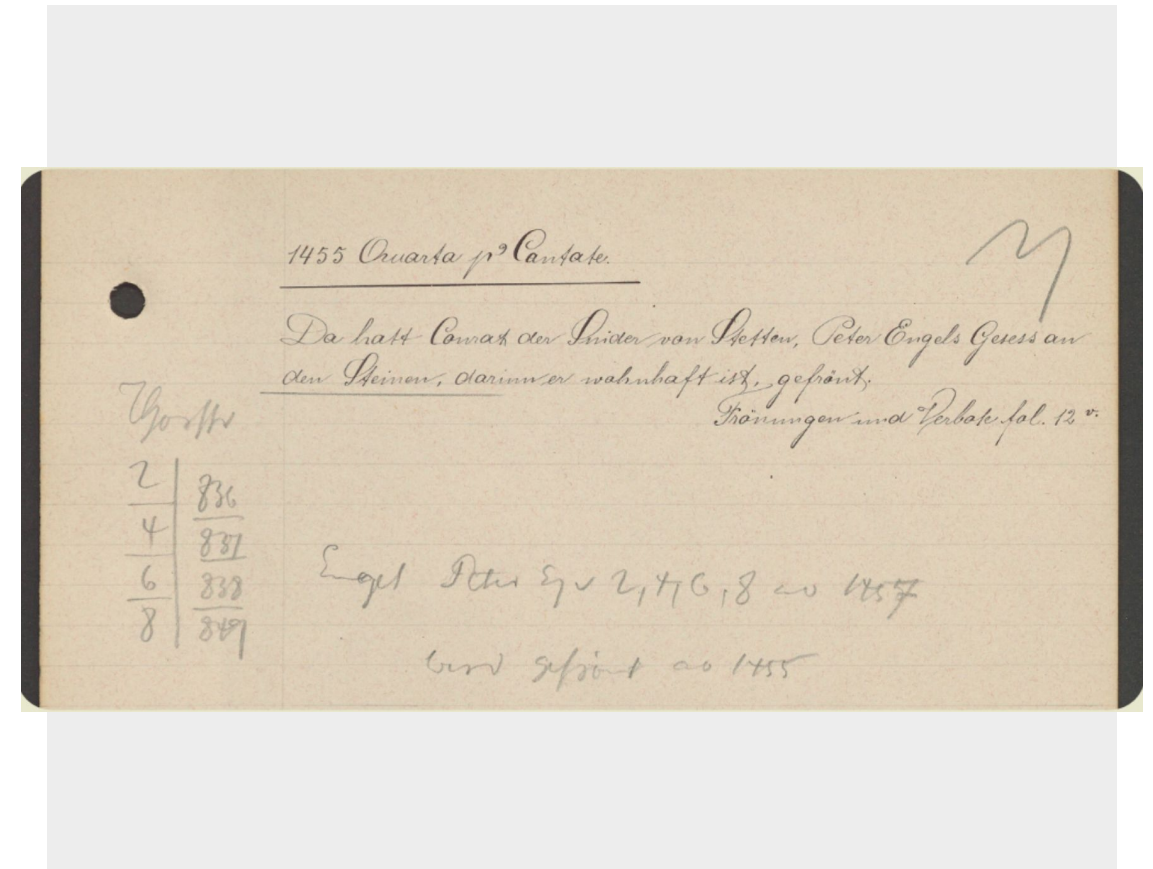 1455 Quarta pꝰ Cantate.
Da hatt Conrat der Snider von Stetten, Peter Engels Gesess an
den Steinen, darinn er wohnhaft ist, gefrönt.
Frönungen und Verbote fol. 12 v.
2 836
4 837
6 838
8 849
Engel Peter 2, 4, 6, 8 ao 1457
wird gefrönt ao 1455